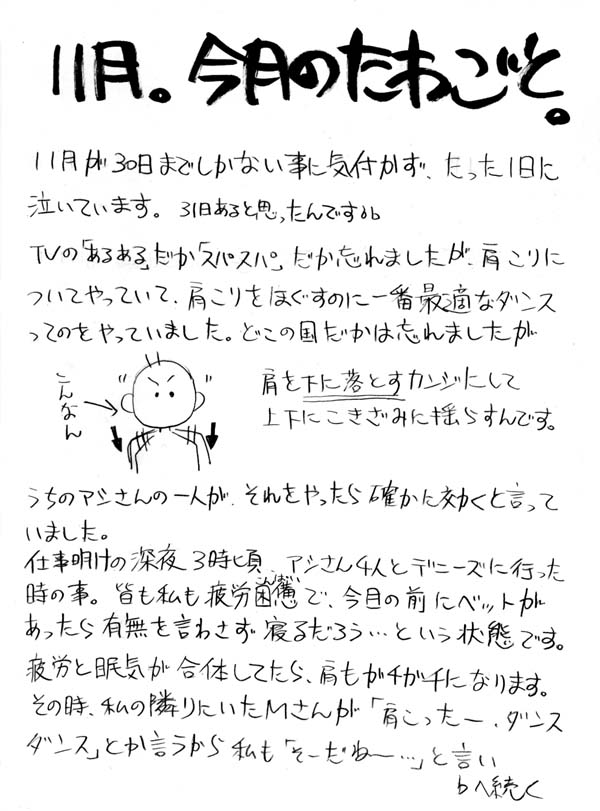 11月。今月のたわごと。
11月が30日までしかない事に気付かず、たった1日に
泣いています。31日あると思ったんですがb
TVの「あるある」だか「スパスパ」だか忘れましたが、肩こりに
ついてやっていて、肩こりをほぐすのに一番最適なダンス
ってのをやっていました。どこの国だかは忘れましたが
こんなん
肩を下に落とすカンジにして
上下にこきざみに揺らすんです。
うちのアシさんの一人が、それをやったら確かに効くと言って
いました。
仕事明けの深夜3時頃、アシさん4人とデニーズに行った
時の事。皆も私も疲労困憊で、今目の前にベットが
こんぱい
あったら有無を言わさず寝るだろう…という状態です。
疲労と眠気が合体してたら、肩もガチガチになります。
その時、私の隣りにいたMさんが「肩こったー、ダンス
ダンス」とか言うから私も「そーだねー…」と言い
bへ続く